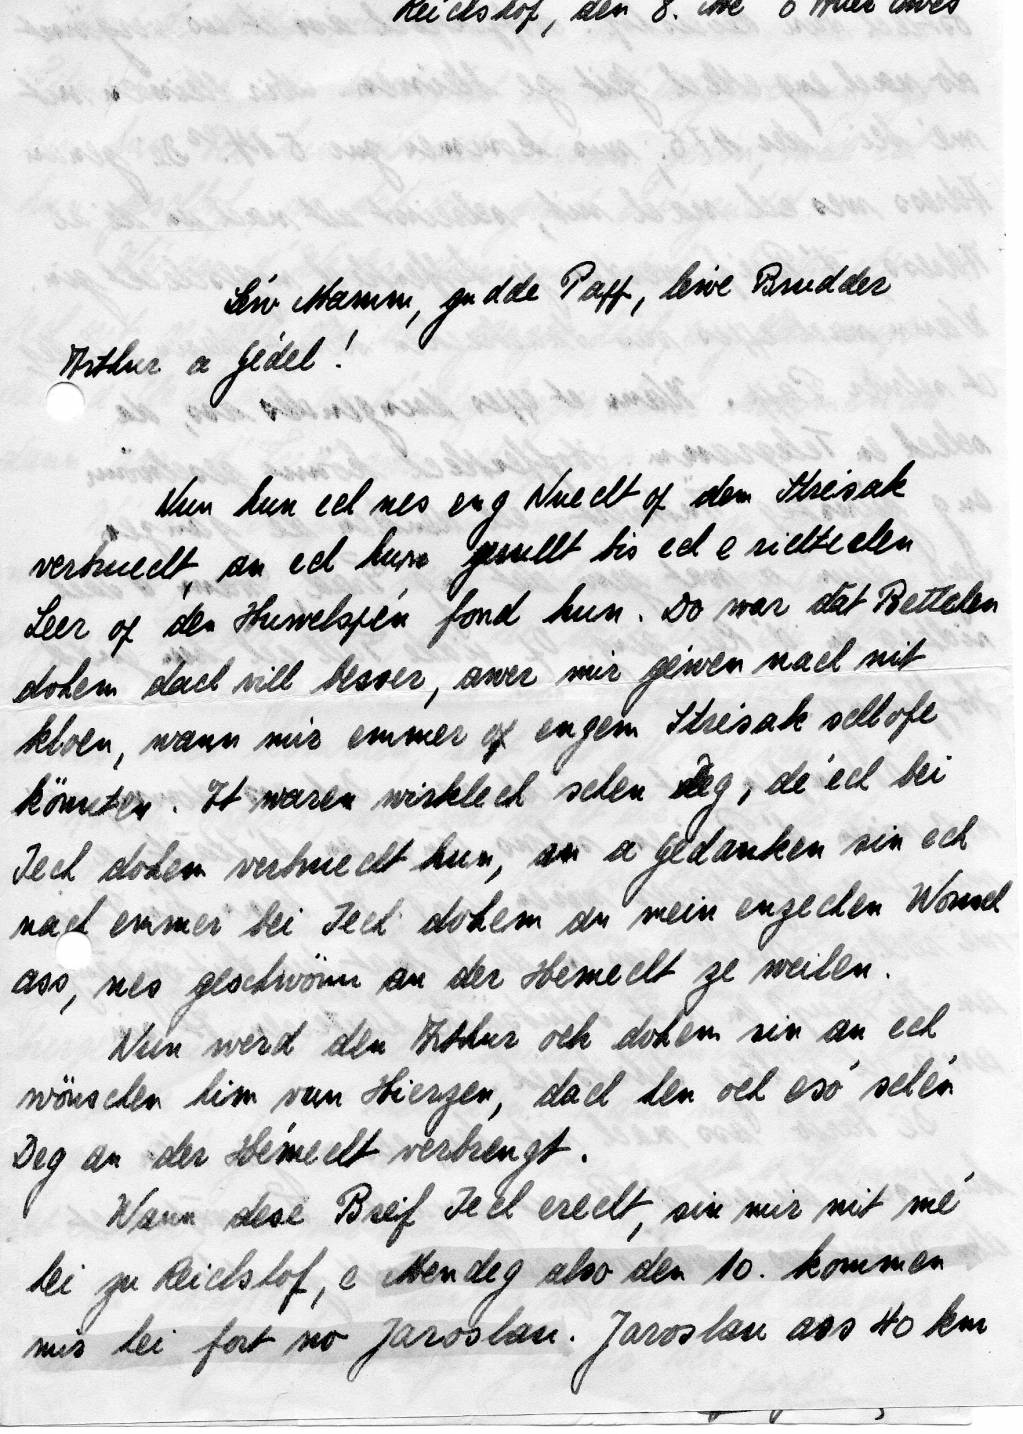 Reichshof, den 8. Me 6 Auer Owes
Léiw Mamm, gudde Papp, leiwe Brudder
Arthur a Gédel!
Nun hun ech nes eng Nuecht op dem Strésak
verbruecht, an ech hun gewullt bis ech e richtechen
Leer op den Huwelspén fond hun. Do war dat Bettchen
dohem dach vill besser, awer mir géiwen nach nit
kloen, wann mir emmer op engem Strésak schlofe
kömten. It waren wirklech schen Deg, dé ech bei
Iech dohem verbruecht hun, an a Gedanken sin ech
nach emmer bei Iech dohem an mein enzechen Wonsch
ass, nes geschwönn an der Hémecht ze weilen.
Nun werd den Arthur och dohem sin an ech
wönschen him vun Hierzen, dach hen och esó schén
Deg an der Hémecht verbrengt.
Wann dese Breif Iech erecht, sin mir nit mé
hei zu Reichshof, e Mendeg also den 10. kommen
mir hei fort no Jaroslau. Jaroslau ass 40 km